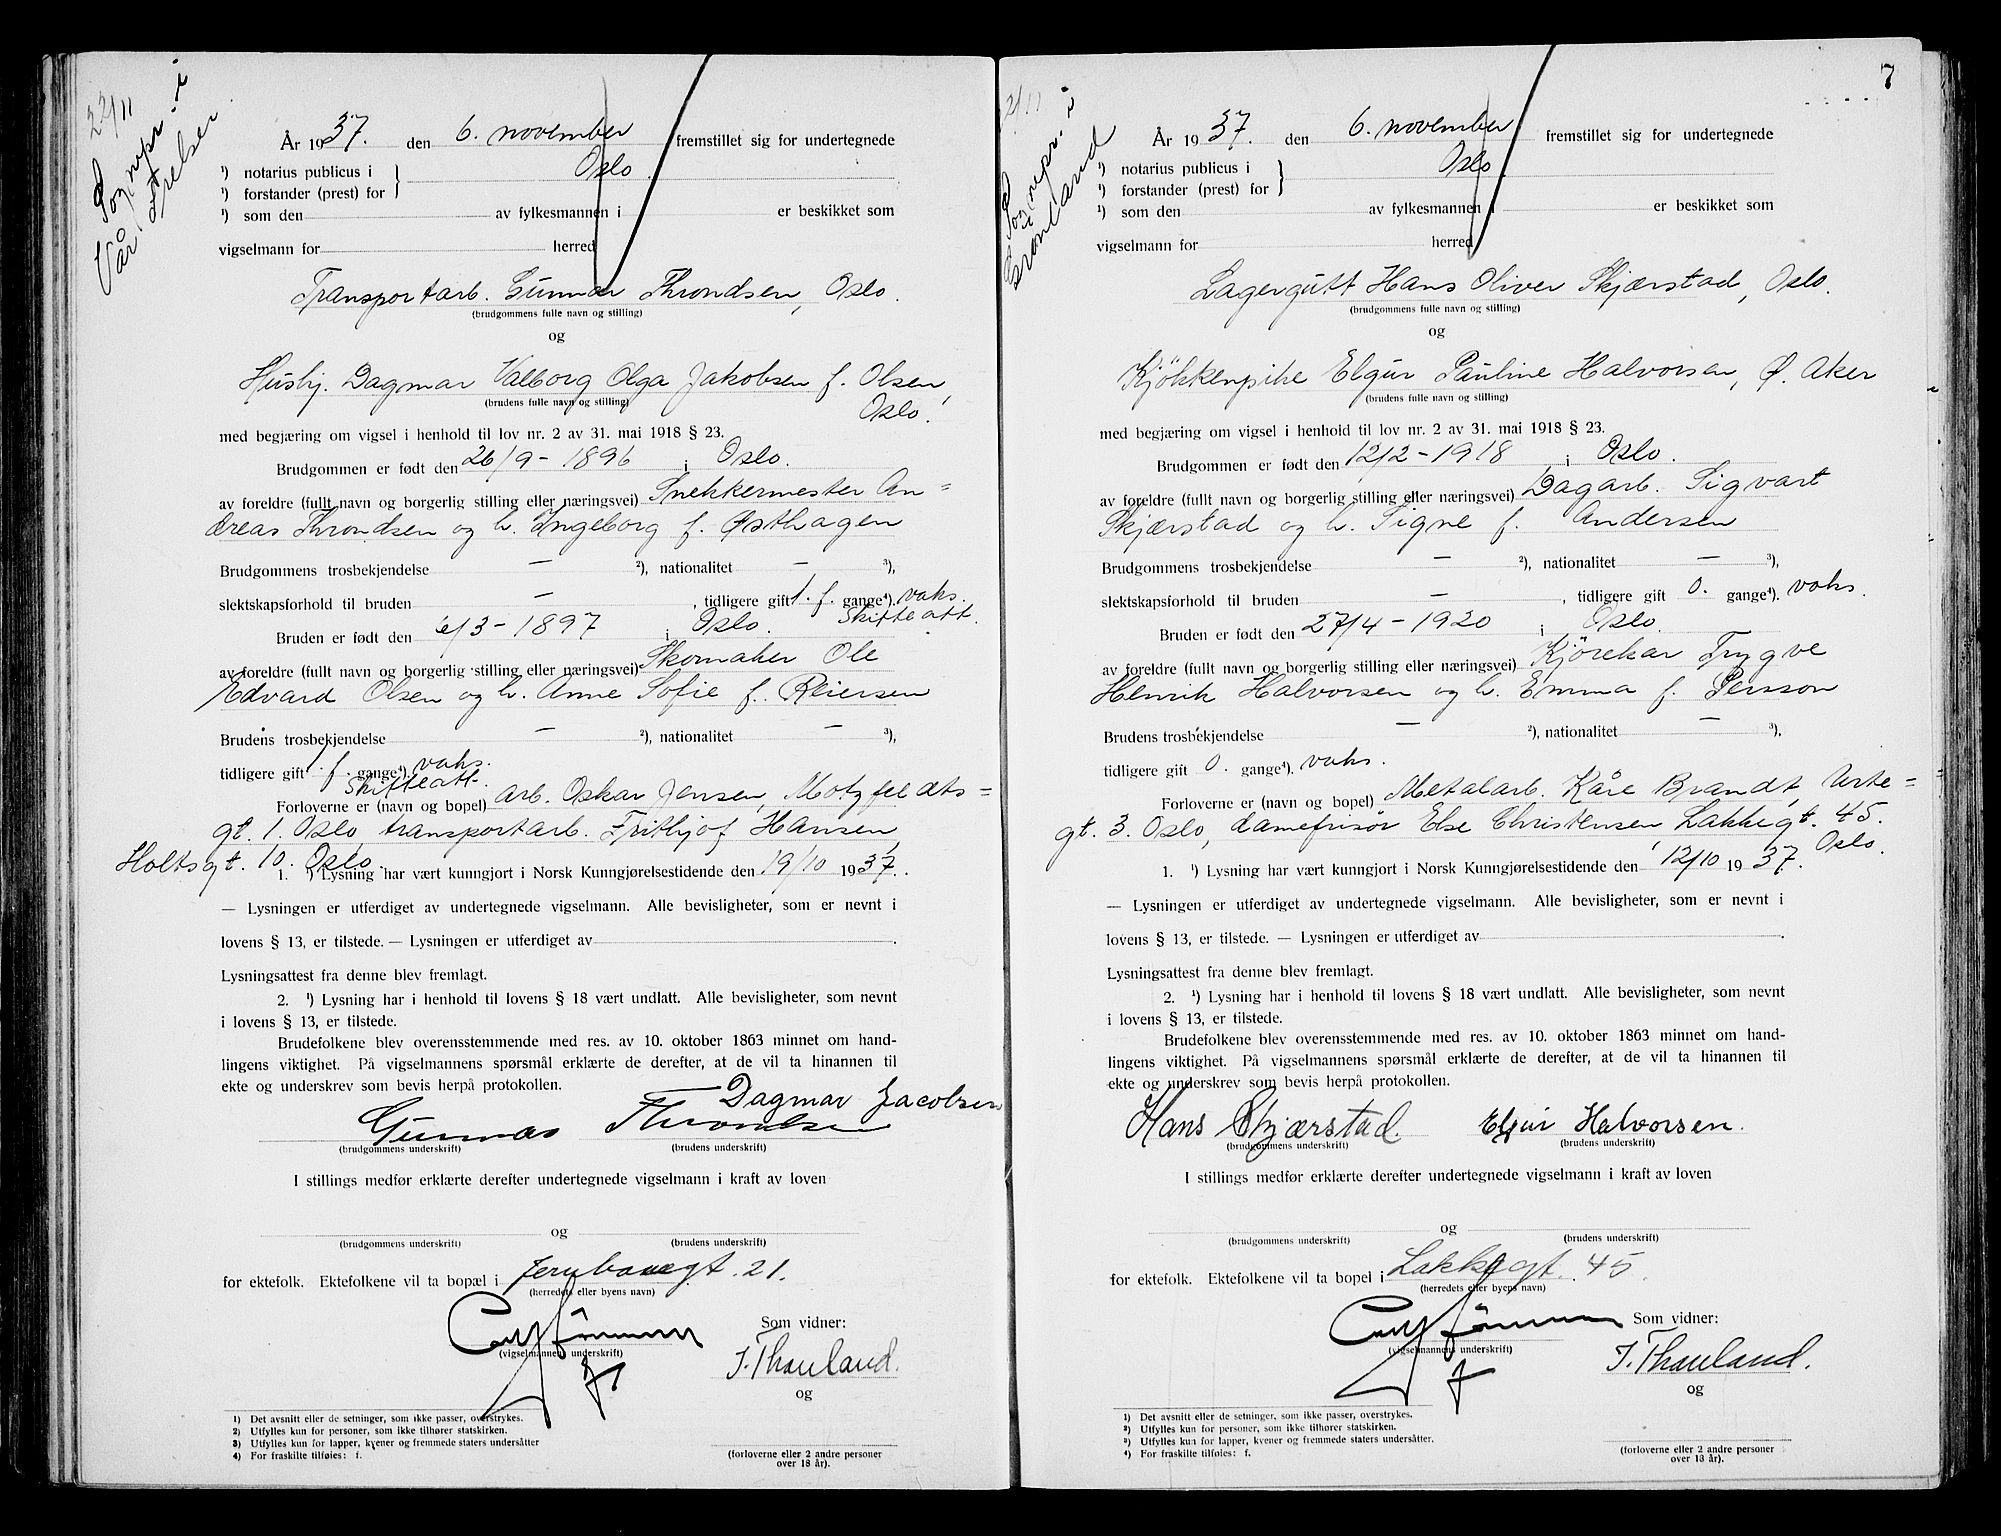 22/11
Sognepr. i
Vår Frelser
År 1937. den 6. november fremstillet sig for undertegnede
¹) notarius publicus i } Oslo.
¹) forstander (prest) for
¹) som den av fylkesmannen i er beskikket som
vigselmann for herred
Transportarb. Gunnar Throndsen, Oslo.
(brudgommens fulle navn og stilling)
og
Husbj. Dagmar Valborg Olga Jakobsen f. Olsen,
(brudens fulle navn og stilling) Oslo.
med begjæring om vigsel i henhold til lov nr. 2 av 31. mai 1918 § 23.
Brudgommen er født den 26/9 - 1896 i Oslo.
av foreldre (fullt navn og borgerlig stilling eller næringsvei) Snekkermester An=
dreas Throndsen og h. Ingeborg f. Østhagen
Brudgommens trosbekjendelse — ²), nationalitet — ³),
slektskapsforhold til bruden — , tidligere gift 1. f. gange⁴). vaks.
Skifteatt.
Bruden er født den /3 - 1897 i Oslo.
av foreldre (fullt navn og borgerlig stilling eller næringsvei) Skomaker Ole
Edvard Olsen og h. Anne Sofie f. Reiersen
Brudens trosbekjendelse — ²), nationalitet — ³),
tidligere gift 1 f. gange⁴). vaks.
Skifteatt.
Forloverne er (navn og bopel) arb. Oskar Jensen, Motzfeldts=
gt. 1. Oslo transportarb. Frithjof Hansen,
Holtsgt. 10. Oslo.
1. ¹) Lysning har vært kunngjort i Norsk Kunngjørelsestidende den 19/10 1937.
— Lysningen er utferdiget av undertegnede vigselmann. Alle bevisligheter, som er nevnt i
lovens § 13, er tilstede. — Lysningen er utferdiget av .
Lysningsattest fra denne blev fremlagt.
2. ¹) Lysning har i henhold til lovens § 18 vært undlatt. Alle bevisligheter, som nevnt
i lovens § 13, er tilstede.
Brudefolkene blev overensstemmende med res. av 10. oktober 1863 minnet om hand-
lingens viktighet. På vigselmannens spørsmål erklærte de derefter, at de vil ta hinannen til
ekte og underskrev som bevis herpå protokollen.
Dagmar Jacobsen
Gunnar Throndsen
(brudgommens underskrift) (brudens underskrift)
I stillings medfør erklærte derefter undertegnede vigselmann i kraft av loven
og
(brudgommens underskrift) (brudens underskrift)
for ektefolk. Ektefolkene vil ta bopæl i Jernbanegt. 21.
(herredets eller byens navn)
Som vidner:
(vigselmannens underskrift)
J. Thauland.
og
¹) Det avsnitt eller de setninger, som ikke passer, overstrykes.
²) Utfylles kun for personer, som ikke tilhører statskirken.
³) Utfylles kun for lapper, kvener og fremmede staters undersåtter
⁴) For fraskilte tilføies: f.
(forloverne eller 2 andre personer
over 18 år).
7
Sognepr. i
Grønland
År 1937. den 6. november fremstillet sig for undertegnede
¹) notarius publicus i } Oslo.
¹) forstander (prest) for
¹) som den av fylkesmannen i er beskikket som
vigselmann for herred
Lagergutt Hans Oliver Skjærstad, Oslo.
(brudgommens fulle navn og stilling)
og
Kjøkkenpike Elgur Pauline Halvorsen, Ø. Aker
(brudens fulle navn og stilling)
med begjæring om vigsel i henhold til lov nr. 2 av 31. mai 1918 § 23.
Brudgommen er født den 12/2 - 1918 i Oslo.
av foreldre (fullt navn og borgerlig stilling eller næringsvei) Dagarb. Sigvart
Skjærstad og h. Signe f. Andersen
Brudgommens trosbekjendelse — ²), nationalitet — ³),
slektskapsforhold til bruden — , tidligere gift 0. gange⁴). vaks.
Bruden er født den 27/4 - 1920 i Oslo.
av foreldre (fullt navn og borgerlig stilling eller næringsvei) Kjørekar Trygve
Henrik Halvorsen og h. Emma f. Persson
Brudens trosbekjendelse — ²), nationalitet — ³),
tidligere gift 0. gange⁴). vaks.
Forloverne er (navn og bopel) Metalarb. Kåre Brandt, Urte=
gt. 3. Oslo, damefrisør Else Christensen Lakkegt. 45.
Oslo.
1. ¹) Lysning har vært kunngjort i Norsk Kunngjørelsestidende den 12/10 1937.
— Lysningen er utferdiget av undertegnede vigselmann. Alle bevisligheter, som er nevnt i
lovens § 13, er tilstede. — Lysningen er utferdiget av .
Lysningsattest fra denne blev fremlagt.
2. ¹) Lysning har i henhold til lovens § 18 vært undlatt. Alle bevisligheter, som nevnt
i lovens § 13, er tilstede.
Brudefolkene blev overensstemmende med res. av 10. oktober 1863 minnet om hand-
lingens viktighet. På vigselmannens spørsmål erklærte de derefter, at de vil ta hinannen til
ekte og underskrev som bevis herpå protokollen.
Hans Skjærstad. Elgur Halvorsen.
(brudgommens underskrift) (brudens underskrift)
I stillings medfør erklærte derefter undertegnede vigselmann i kraft av loven
og
(brudgommens underskrift) (brudens underskrift)
for ektefolk. Ektefolkene vil ta bopel i Lakkegt. 45.
(herredets eller byens navn)
Som vidner:
(vigselmannens underskrift)
J. Thauland.
og
¹) Det avsnitt eller de setninger, som ikke passer, overstrykes.
²) Utfylles kun for personer, som ikke tilhører statskirken.
³) Utfylles kun for lapper, kvener og fremmede staters undersåtter.
⁴) For fraskilte tilføies: f.
(forloverne eller 2 andre personer
over 18 år).